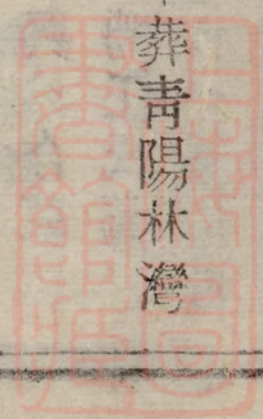 葬青陽林灣